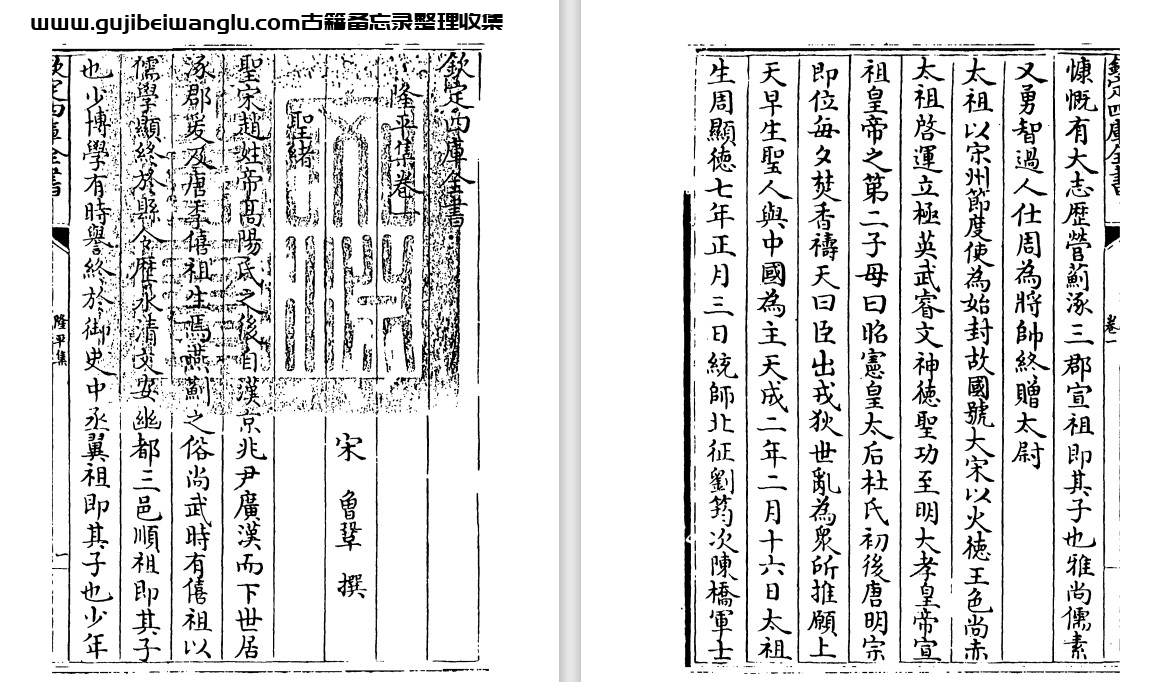 www.gujibeiwanglu.com古籍备忘录整理收集
欽定四庫全書
隆平集卷一
宋 曾鞏 撰
聖緒
聖宋趙姓帝高陽氏之後自漢京兆尹廣漢而下世居
涿郡爰及唐季僖祖生焉燕薊之俗尚武時有僖祖以
儒學顯終於縣令歷永清文安幽都三邑順祖即其子
也少博學有時譽終於御史中丞翼祖即其子也少年
欽定四庫全書
隆平集
一
欽定四庫全書
卷一
慷慨有大志歷營薊涿三郡宣祖即其子也雅尚儒素
又勇智過人仕周為將帥終贈太尉
太祖以宋州節度使為始封故國號大宋以火徳王色尚赤
太祖啓運立極英武睿文神徳聖功至明大孝皇帝宣
祖皇帝之第二子母曰昭憲皇太后杜氏初後唐明宗
即位每夕焚香禱天曰臣出戎狄世亂為衆所推願上
天早生聖人與中國為主天成二年二月十六日太祖
生周顯徳七年正月三日統師北征劉筠次陳橋軍士